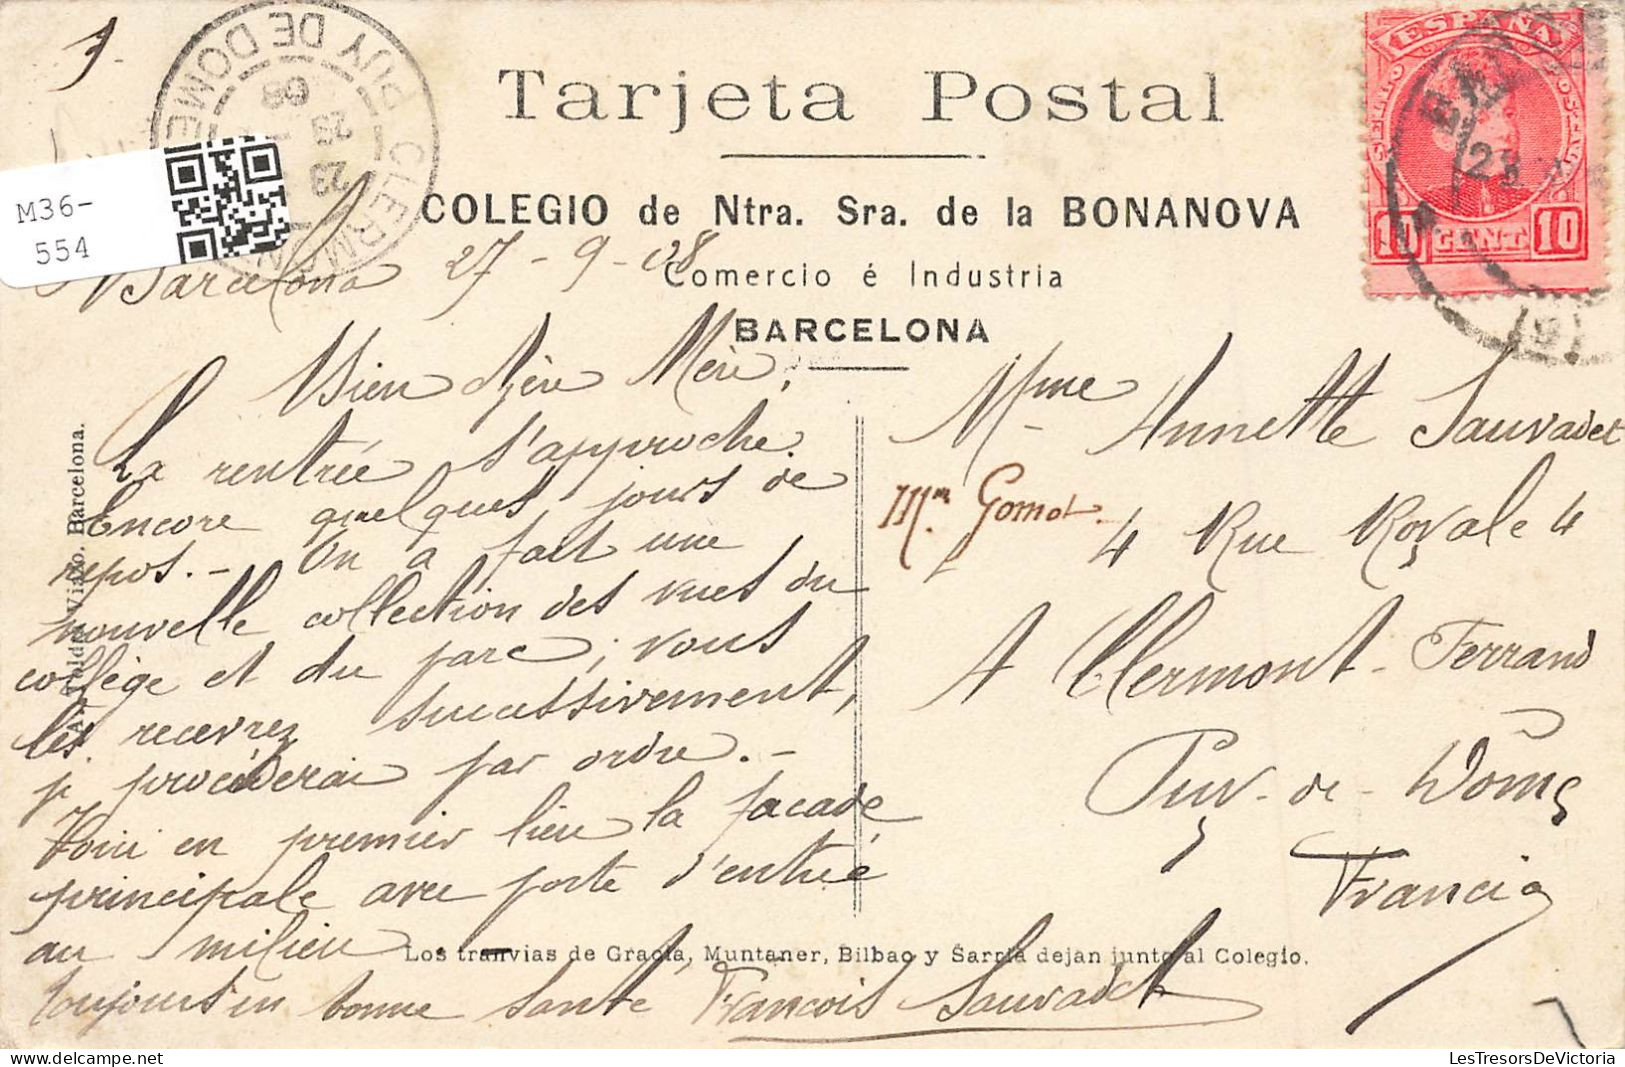 3.
CLERMONT
PUY DE DOME
23
23
08
Tarjeta Postal
ESPAÑA
10 CENT. 10
23
(9)
M36-
554
COLEGIO de Ntra. Sra. de la BONANOVA
Barcelona 27-9-08
Comercio é Industria
BARCELONA
Bien chère Mère,
La rentrée s'approche.
Encore quelques jours de
repos. - On a fait une
nouvelle collection des vues du
collège et du parc; vous
les recevrez successivement,
je procéderai par ordre. -
Voici en premier lieu la façade
principale avec porte d'entrée
au milieu
toujours en bonne santé, François Sauvadet
Mme Annette Sauvadet
Mm Gomot.
4 Rue Royale 4
A Clermont-Ferrand
Puy-de-Dôme
Francia
Viazo. Barcelona.
Los tranvias de Gracia, Muntaner, Bilbao y Sarriá dejan junto al Colegio.
LesTresorsDeVictoria.com